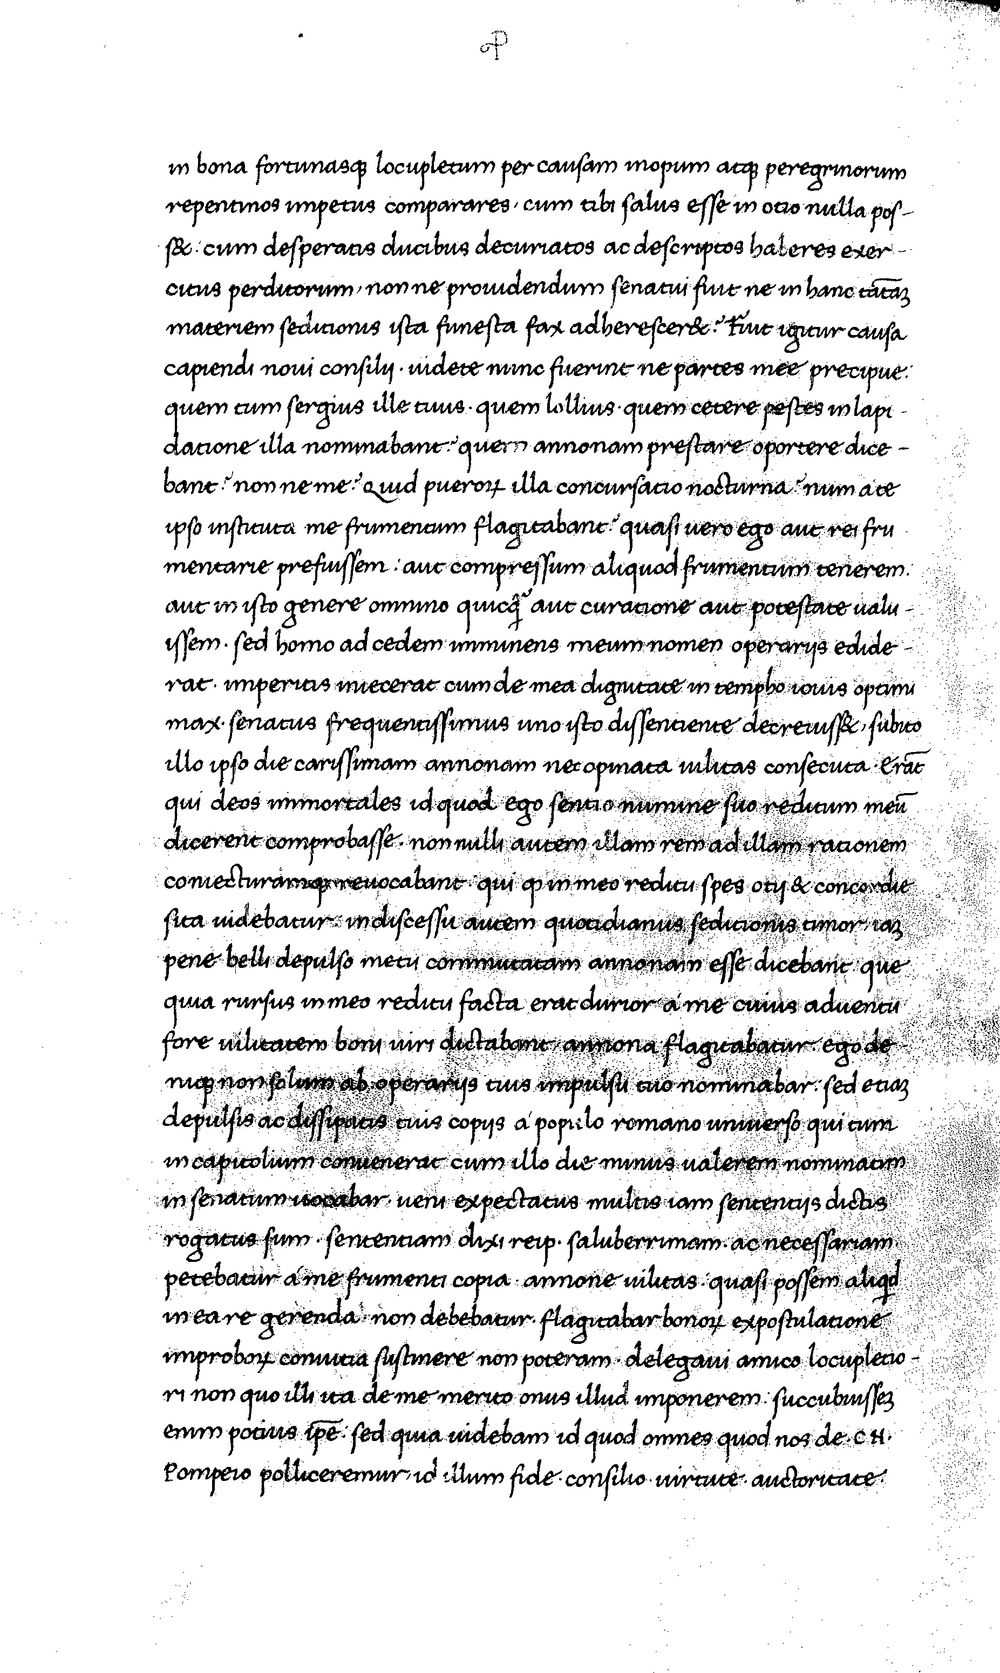 in bona fortunasq; locupletum per causam inopum atq; peregrinorum
repentinos impetus comparares · cum tibi salus esse in otio nulla pos-
s& · cum desperatis ducibus decuriatos ac descriptos haberes exer-
citus perditorum, non ne prouidendum senatui fuit ne in hanc tātaꝫ
materiem seditionis ista funesta fax adherescer&? Fuit igitur causa
capiendi noui consilij · uidete nunc fuerint ne partes mee precipue:
quem tum sergius ille tuus · quem lollius · quem cetere pestes in lapi-
datione illa nominabant? quem annonam prestare oportere dice-
bant? non ne me? Quid pueroꝝ illa concursatio nocturna? num a te
ipso instituta me frumentum flagitabant? quasi uero ego aut rei fru
mentarie prefuissem: aut compressum aliquod frumentum tenerem:
aut in isto genere omnino quicq̄ aut curatione aut potestate ualu-
issem · sed homo ad cedem imminens meum nomen operarijs edide-
rat · imperitis iniecerat cum de mea dignitate in templo iouis optimi
max · senatus frequentissimus uno isto dissentiente decreuiss&, subito
illo ipso die carissimam annonam nec opinata uilitas consecuta · Erāt
qui deos immortales id quod ego sentio numine suo reditum meū
dicerent comprobasse · non nulli autem illam rem ad illam rationem
coniecturamq; reuocabant · qui ꝙ in meo reditu spes otij & concordie
sita uidebatur: in discessu autem quotidianus seditionis timor, iaꝫ
pene belli depulso metu commutatam annonam esse dicebant: que
quia rursus in meo reditu facta erat durior a me cuius aduentu
fore uilitatem boni uiri dictabant, annona flagitabatur: ego de-
niq; non solum ab operarijs tuis impulsu tuo nominabar: sed etiaꝫ
depulsis ac dissipatis tuis copijs a populo romano uniuerso qui tum
in capitolium conuenerat cum illo die minus ualerem nominatim
in senatum uocabar · ueni expectatus multis iam sententijs dictis
rogatus sum · sententiam dixi reip · saluberrimam · ac necessariam ·
petebatur a me frumenti copia · annone uilitas · quasi possem aliqd
in ea re gerenda · non debebatur · flagitabar bonoꝝ expostulatione
improboꝝ conuitia sustinere non poteram · delegaui amico locupletio-
ri non quo illi ita de me merito onus illud imponerem: succubuisseꝫ
enim potius ip̄e: sed quia uidebam id quod omnes quod nos de · CN ·
Pompeio polliceremur, id illum fide · consilio · uirtute · auctoritate ·